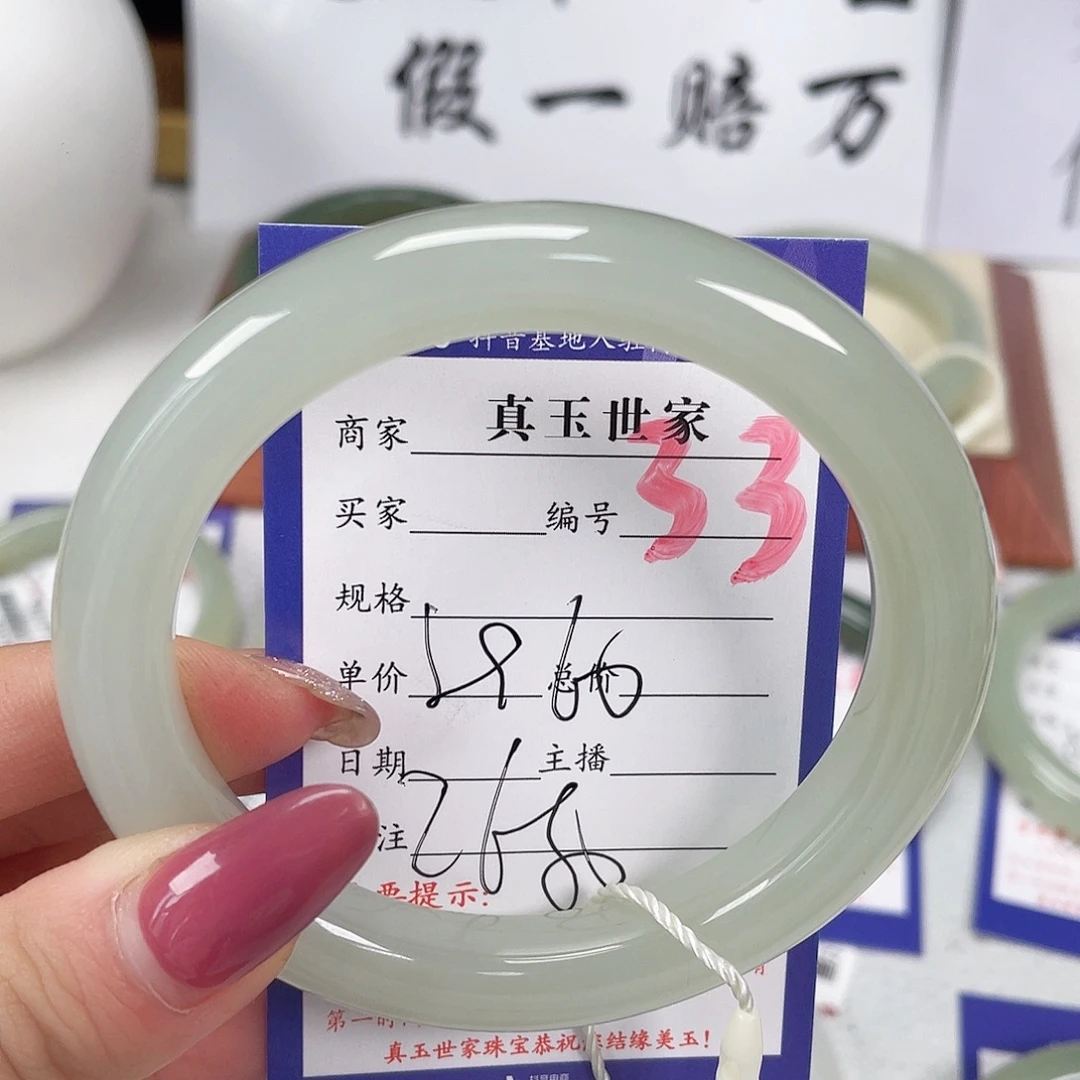 假一赔万
抖音基地入驻
商家 真玉世家
买家 编号 33
规格
单价 总价
58 60
日期 主播
注
268
要提示:
真玉世家珠宝恭祝您结缘美玉!
抖音电商